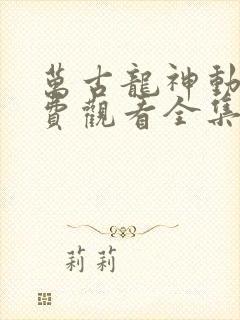 萬古龍神動
費觀看全集
莉莉